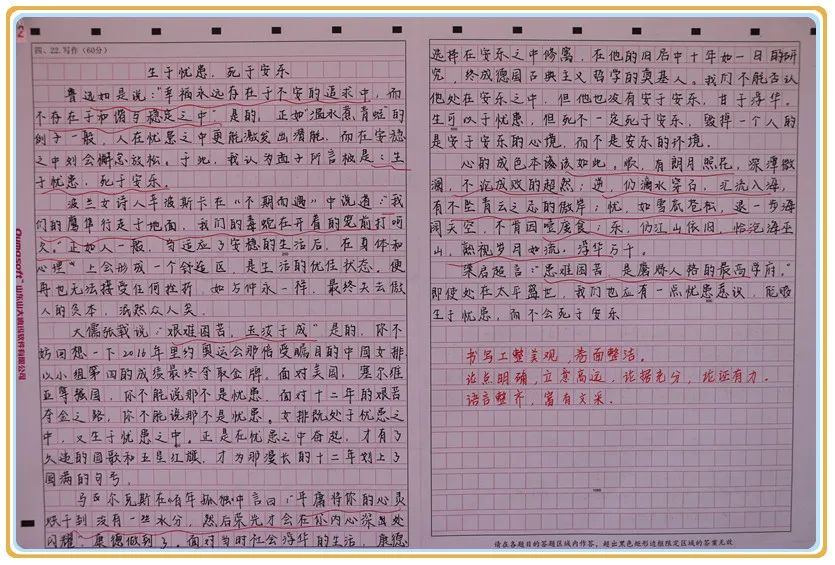 四、22.写作(60分)
生于忧患，死于安乐
鲁迅如是说："幸福永远存在于不安的追求中，而
不存在于和谐与稳定之中"是的，正如"温水煮青蛙"的
例子一般，人在忧患之中更能激发出潜能，而在安稳
之中则会懈怠放松。于此，我认为孟子所言极是：生
于忧患，死于安乐。
波兰女诗人辛波斯卡在《不期而遇》中说道：我
们的鹰隼行走于地面，我们的毒蛇在开着的笼前打呵
欠"正如人一般，当适应了安稳的生活后，在身体和
心理"上会形成一个舒适区，是生活的优佳状态。便
再也无法接受任何挫折，如与仲永一样，最终失去做
人的资本，泯然众人矣。
大儒张载说：艰难困苦，玉汝于成"是的，你不
妨回想一下2016年里约奥运会那倍受瞩目的中国女排，
以小组第四的成绩最终夺取金牌。面对美国，塞尔维
亚等强国，你不能说那不是忧患，面对十二年的艰苦
夺金之路，你不能说那不是忧患。女排既处于忧患之
中，又生于忧患之中。正是在忧患之中奋起，才有了
久违的国歌和五星红旗，才为那漫长的十二年划上了
圆满的句号。
马尔克斯在《百年孤独》中言曰：平庸将你的心灵
烘干到没有一丝水分，然后荣光才会在你内心深处
闪耀"康德做到了。面对当时社会浮华的生活，康德
选择在安乐之中修寓，在他的旧居中十年如一日的研
究，终成德国古典主义哲学的奠基人。我们不能否认
他处在安乐之中，但他也没有安于安乐，甘于浮华。
生可以于忧患，但死不一定死于安乐，毁掉一个人的
是安于安乐的心境，而不是安乐的环境。
心的成色本该该如此。顺，有朗月照花，深潭微
澜，不论成败的超然；逆，仍滴水穿石，汇流入海，
有不坠青云之志的傲岸；忧，如雪底苍松，退一步海
阔天空，不肯因噎废食；乐，仍江山依旧，临沧海巫
山，熟视岁月如流，浮华万千。
梁启超言："患难困苦，是磨炼人格的最高学府。"
即使处在太平盛世，我们也应有一点忧患意识，能够
生于忧患，而不会死于安乐
书写工整美观，卷面整洁。
论点明确，立意高远，论据充分，论证有力。
语言整齐，富有文采。
请在各题目的答题区域内作答，超出黑色矩形边框限定区域的答案无效
Oumasoft 山东山大鸥玛软件有限公司